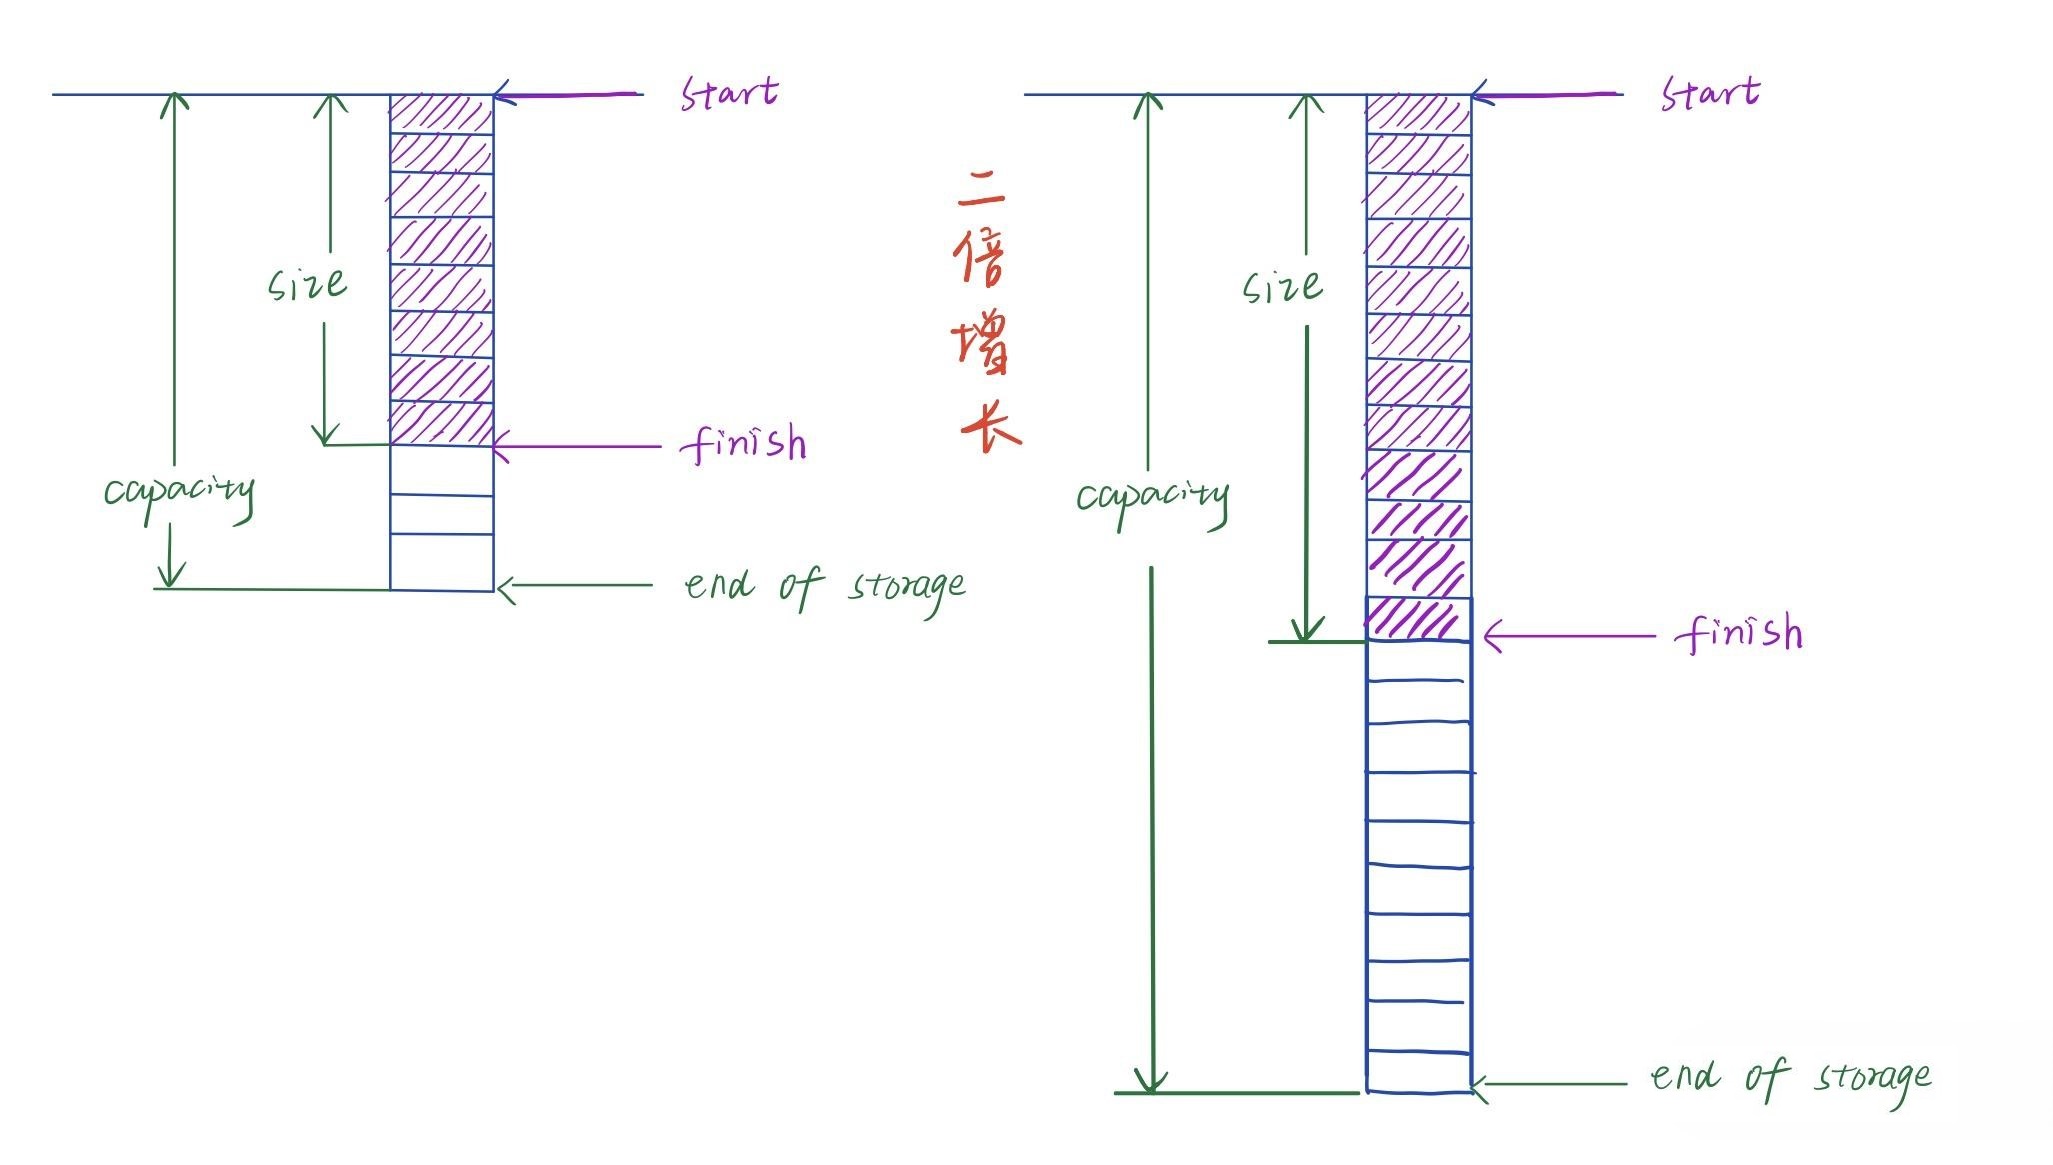 start
size
finish
capacity
end of storage
二倍增长
start
size
capacity
finish
end of storage